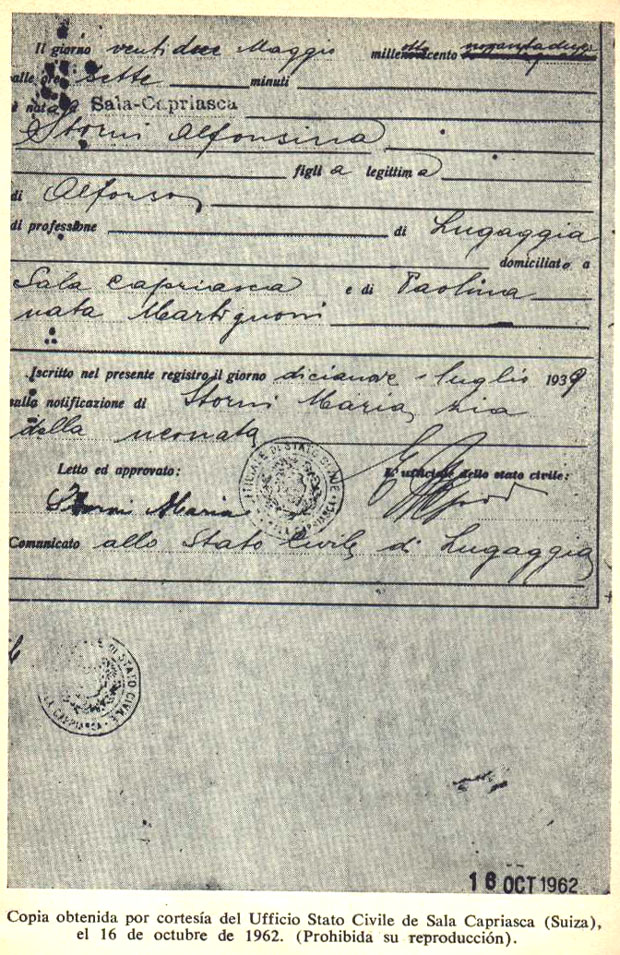 Il giorno ventidue Maggio millenovecento otto novantadue
alle ore sette minuti
è nata a Sala-Capriasca
Storni Alfonsina
figlia legittima
di Alfonso
di professione di Lugaggia
domiciliato a
Sala Capriasca e di Paolina
nata Martignoni
Iscritto nel presente registro il giorno dicianove luglio 1939
sulla notificazione di Storni Maria zia
della neonata
Letto ed approvato: L'ufficiale dello stato civile:
Storni Maria
Comunicato allo Stato Civile di Lugaggia
DI STATO CIVILE
CAPRIASCA
16 OCT 1962
Copia obtenida por cortesía del Ufficio Stato Civile de Sala Capriasca (Suiza),
el 16 de octubre de 1962. (Prohibida su reproducción).